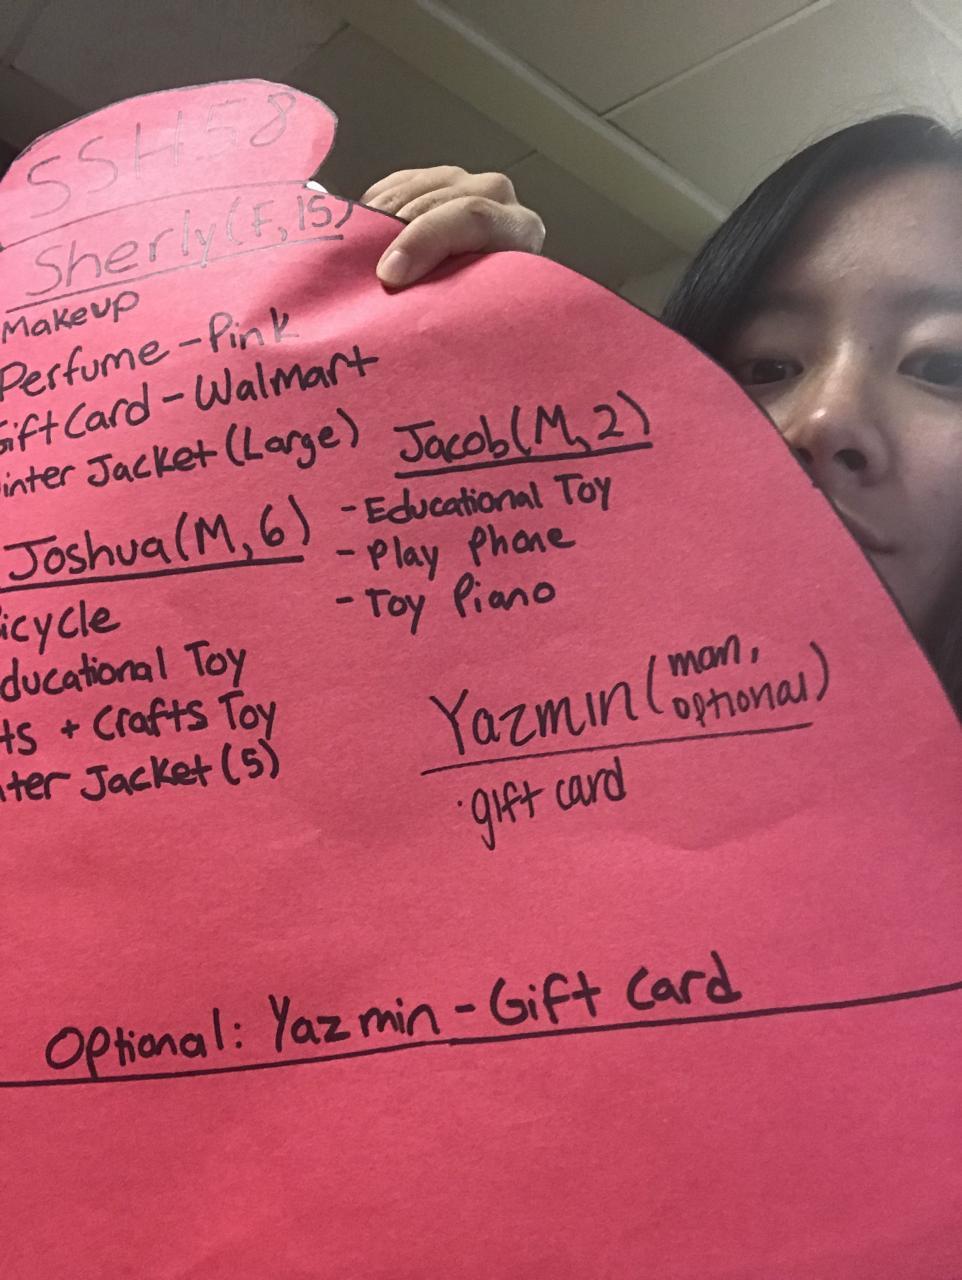 SSH58
Sherly (F, 15)
Makeup
Perfume - Pink
Gift Card - Walmart
inter Jacket (Large)
Jacob (M, 2)
- Educational Toy
- Play Phone
- Toy Piano
Joshua (M, 6)
icycle
ducational Toy
ts + Crafts Toy
nter Jacket (5)
Yazmin (mom, optional)
· gift card
Optional: Yazmin - Gift Card